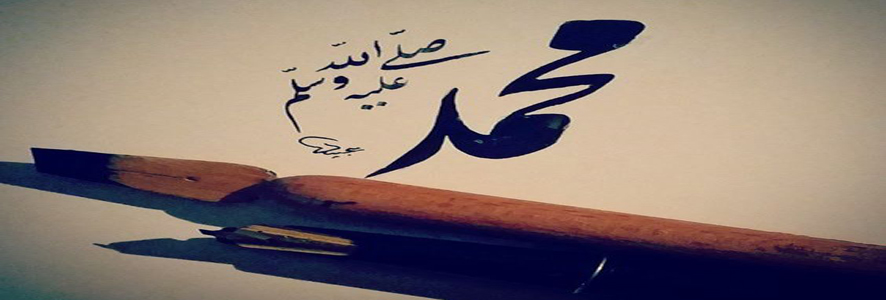 محمد
صلّى اللّه
عليه وسلّم